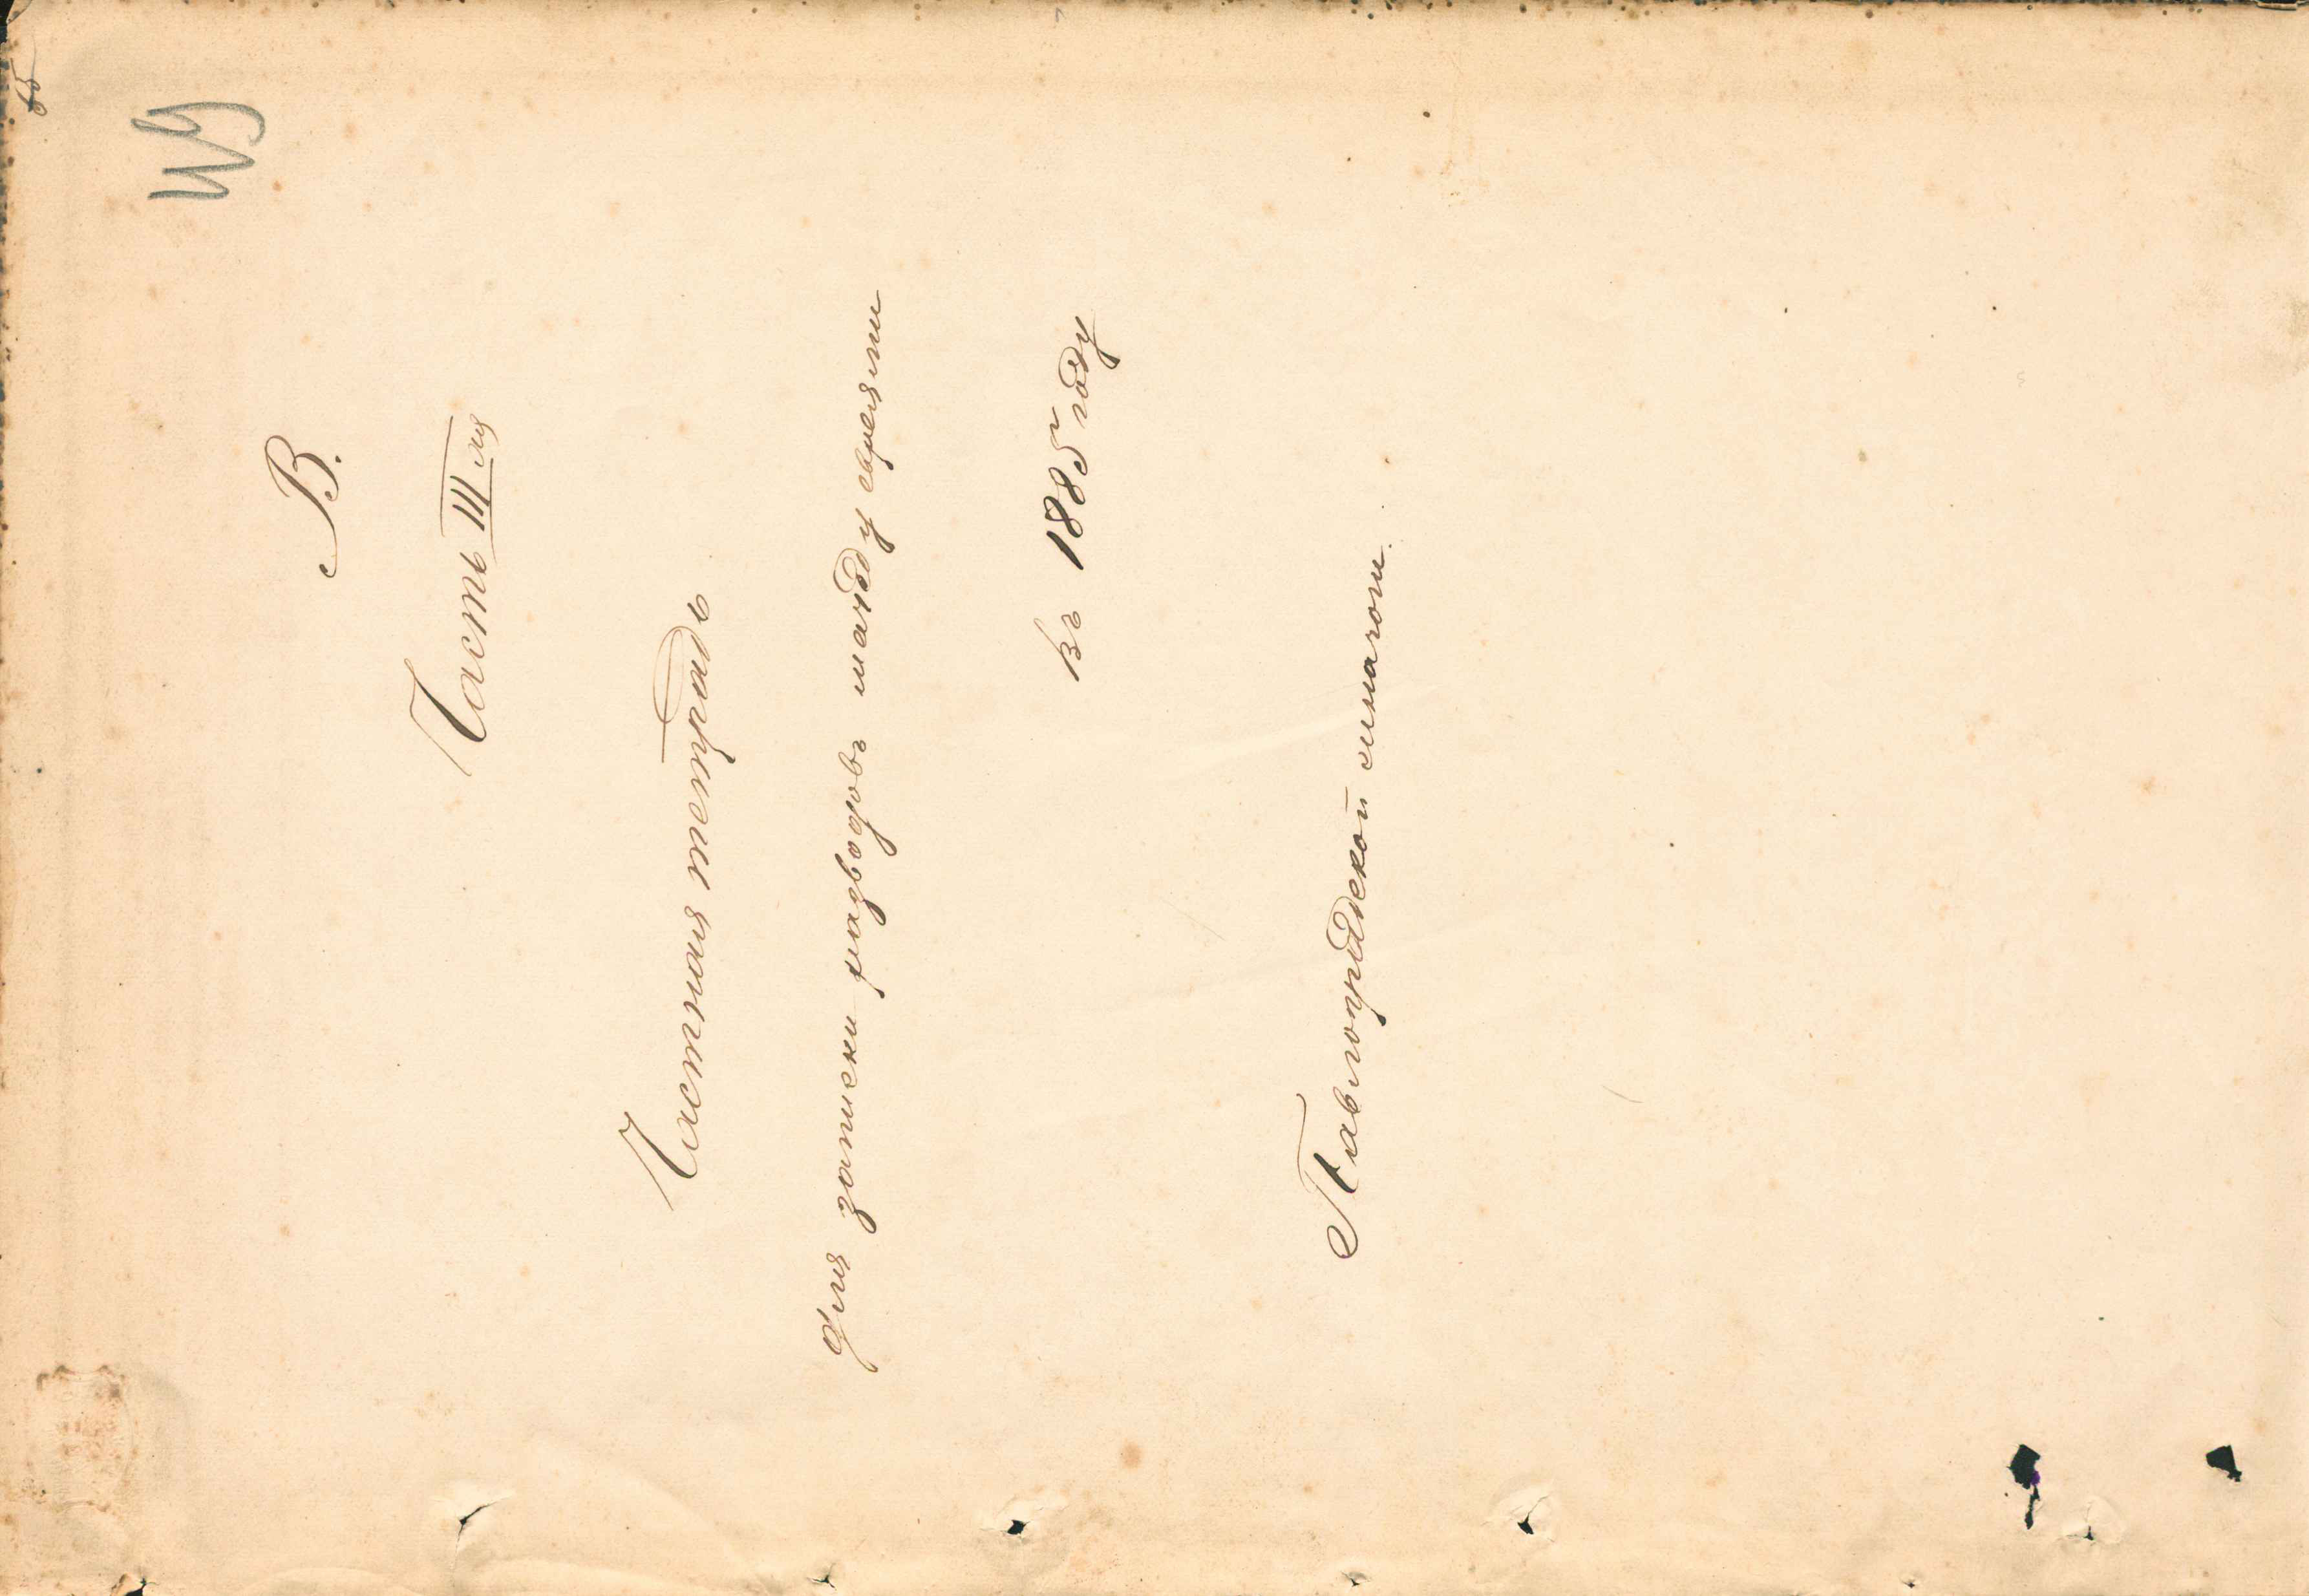 В.
Часть III яя
Частная тетрадь
для записки разводовъ между евреями
въ 1885 году
Павлоградской синагоги.